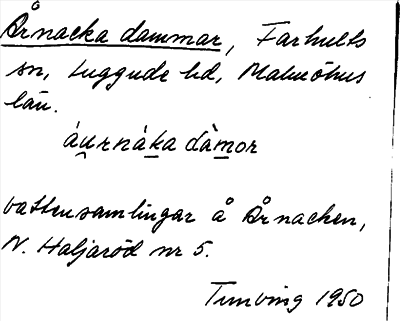 Årnacka dammar, Farhults
sn, Luggude hd, Malmöhus
län.
áu̯rnàka dàmor
vattensamlingar å Årnachen,
N. Haljaröd nr 5.
Tunving 1950